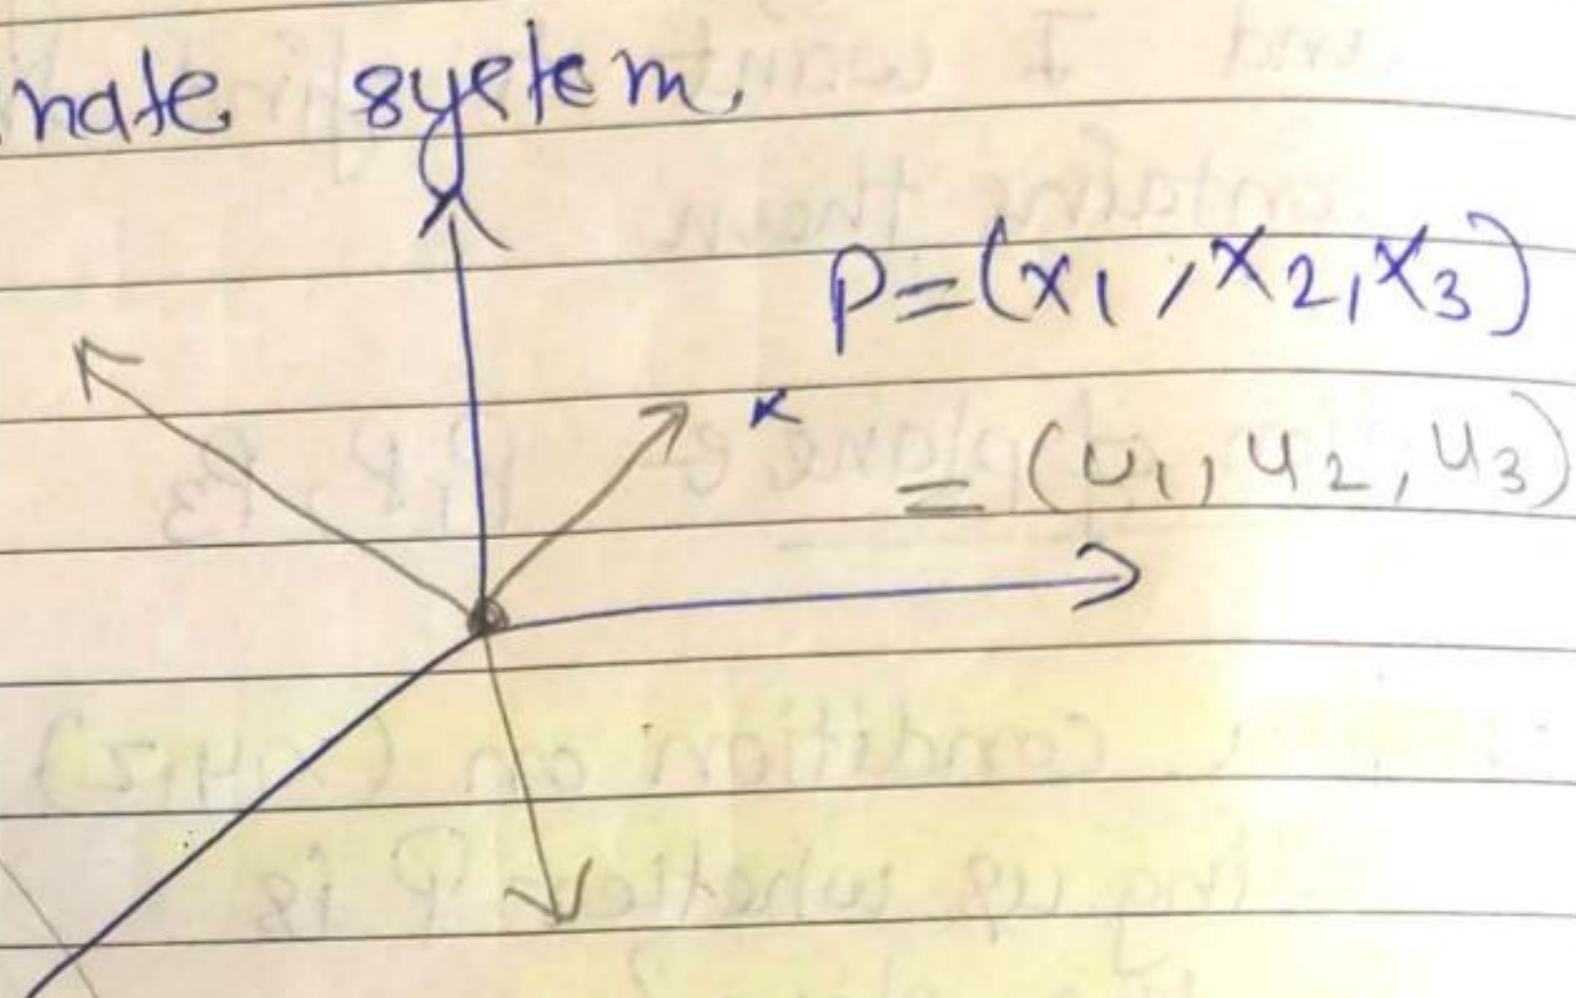 nate system,
P=(x1, x2, x3)
= (u1, u2, u3)